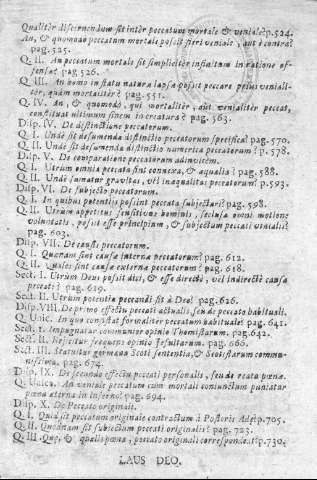 Qualitèr discernendum sit intèr peccatum mortale & veniale? p.524.
An, & quomodo peccatum mortale possit fieri veniale, aut è contrà?
pag. 525.
Q. II. An peccatum mortale sit simplicitèr infinitum in ratione of-
fensæ? pag. 526.
Q. III. An homo in statu naturæ lapsæ possit peccare prius venialI-
tèr, quàm mortalitèr? pag. 551.
Q. IV. An, & quomodo, qui mortalitèr, aut venialitèr peccat,
constituat ultimum finem in creatura? pag. 563.
Disp. IV. De distinctione peccatorum.
Q. I. Undè sit desumenda distinctio peccatorum specifica? pag. 570.
Q. II. Undè sit desumenda distinctio numerica peccatorum? p. 578.
Disp. V. De comparatione peccatorum adinvicèm.
Q. I. Utrùm omnia peccata sint connexa, & aqualia? pag. 588.
Q. II. Undè sumatur gravitas, vèl inæqualitas peccatorum? p. 593.
Disp. VI. De subjecto peccatorum.
Q. I. In quibus potentiis possint peccata subjectari? pag. 598.
Q. II. Utrùm appetitus sensitivus hominis, seclusa omni motione
voluntatis, possit esse principium, & subjectum peccati venialis?
pag. 603.
Disp. VII. De causis peccatorum.
Q. I. Quænam sint causæ internæ peccatorum? pag. 612.
Q. II. Quales sint causæ externæ peccatorum? pag. 618.
Sect. I. Utrùm Deus possit dici, & esse directè, vèl indirectè causa
peccati? pag. 619.
Sect. II. Utrùm potentia peccandi sit à Deo? pag. 626.
Disp. VIII. De primo effectu peccati actualis, seu de peccato habituali.
Q. Unic. In quo consistat formalitèr peccatum habituale? pag. 641.
Sect. I. Impugnatur communior opinio Thomistarum. pag. 642.
Sect. II. Rejicitur frequens opinio Jesuitarum. pag. 666.
Sect. III. Statuitur germana Scoti sententia, & Scotistarum commu-
nissima. pag. 674.
Disp. IX. De secundo effectu peccati personalis, seu de reatu pœnæ.
Q. Unica. An veniale peccatum cum mortali coniunctum puniatur
pœna æterna in inferno? pag. 694.
Disp. X. De Peccato originali.
Q. I. Quid sit peccatum originale contractum à Posteris Adæ? p. 705.
Q. II. Quodnam sit subiectum peccati originalis? pag. 723.
Q. III. Quæ, & qualis pœna, peccato originali correspondeat? p. 730.
LAUS DEO.